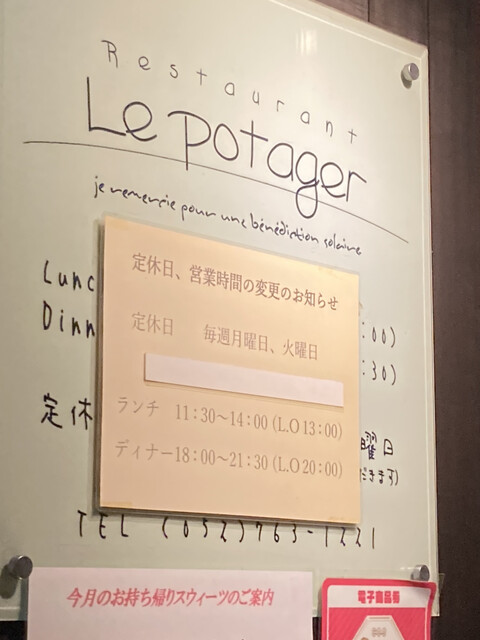 Restaurant
Le potager
je remercie pour une bénédiction solaire
定休日、営業時間の変更のお知らせ
Lunc :00)
定休日 毎週月曜日、火曜日
Dinn :30)
ランチ 11:30～14:00 (L.O 13:00)
定休 曜日
ディナー18:00～21:30 (L.O 20:00)
だきます)
TEL (052)763-1221
今月のお持ち帰りスウィーツのご案内
電子商品券